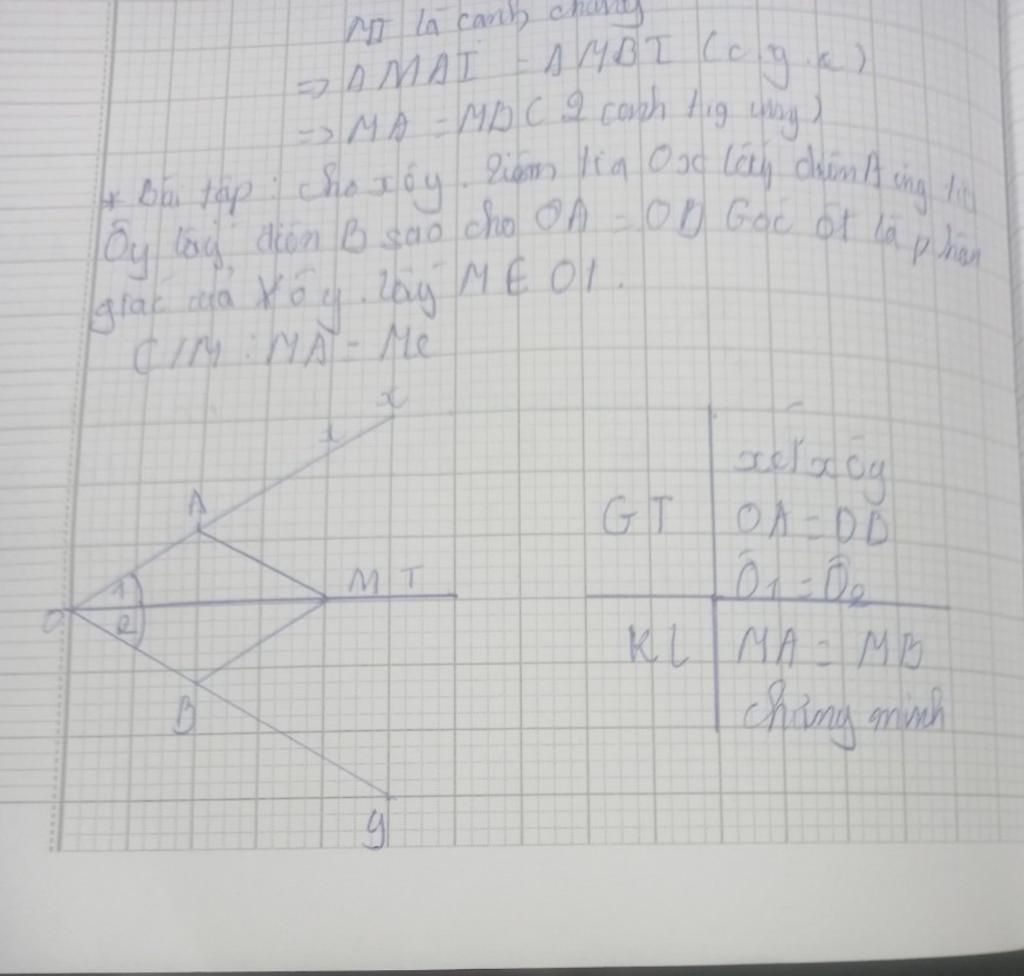 MI là cạnh chung
=> Δ MAI = Δ MBI (c.g.c)
=> MA = MB ( 2 cạnh tig ứng)
* Bài tập: Cho xÔy. trên tia Ox lấy điểm A
Ôy lấy điểm B sao cho OA = OB Góc Ot là phân
giác của xÔy. lấy M ∈ Ot.
C/M: MA = Mc
x
A
1
2
O
M T
B
y
GT
xét xÔy
OA = OB
Ô1 = Ô2
KL
MA = MB
chứng minh